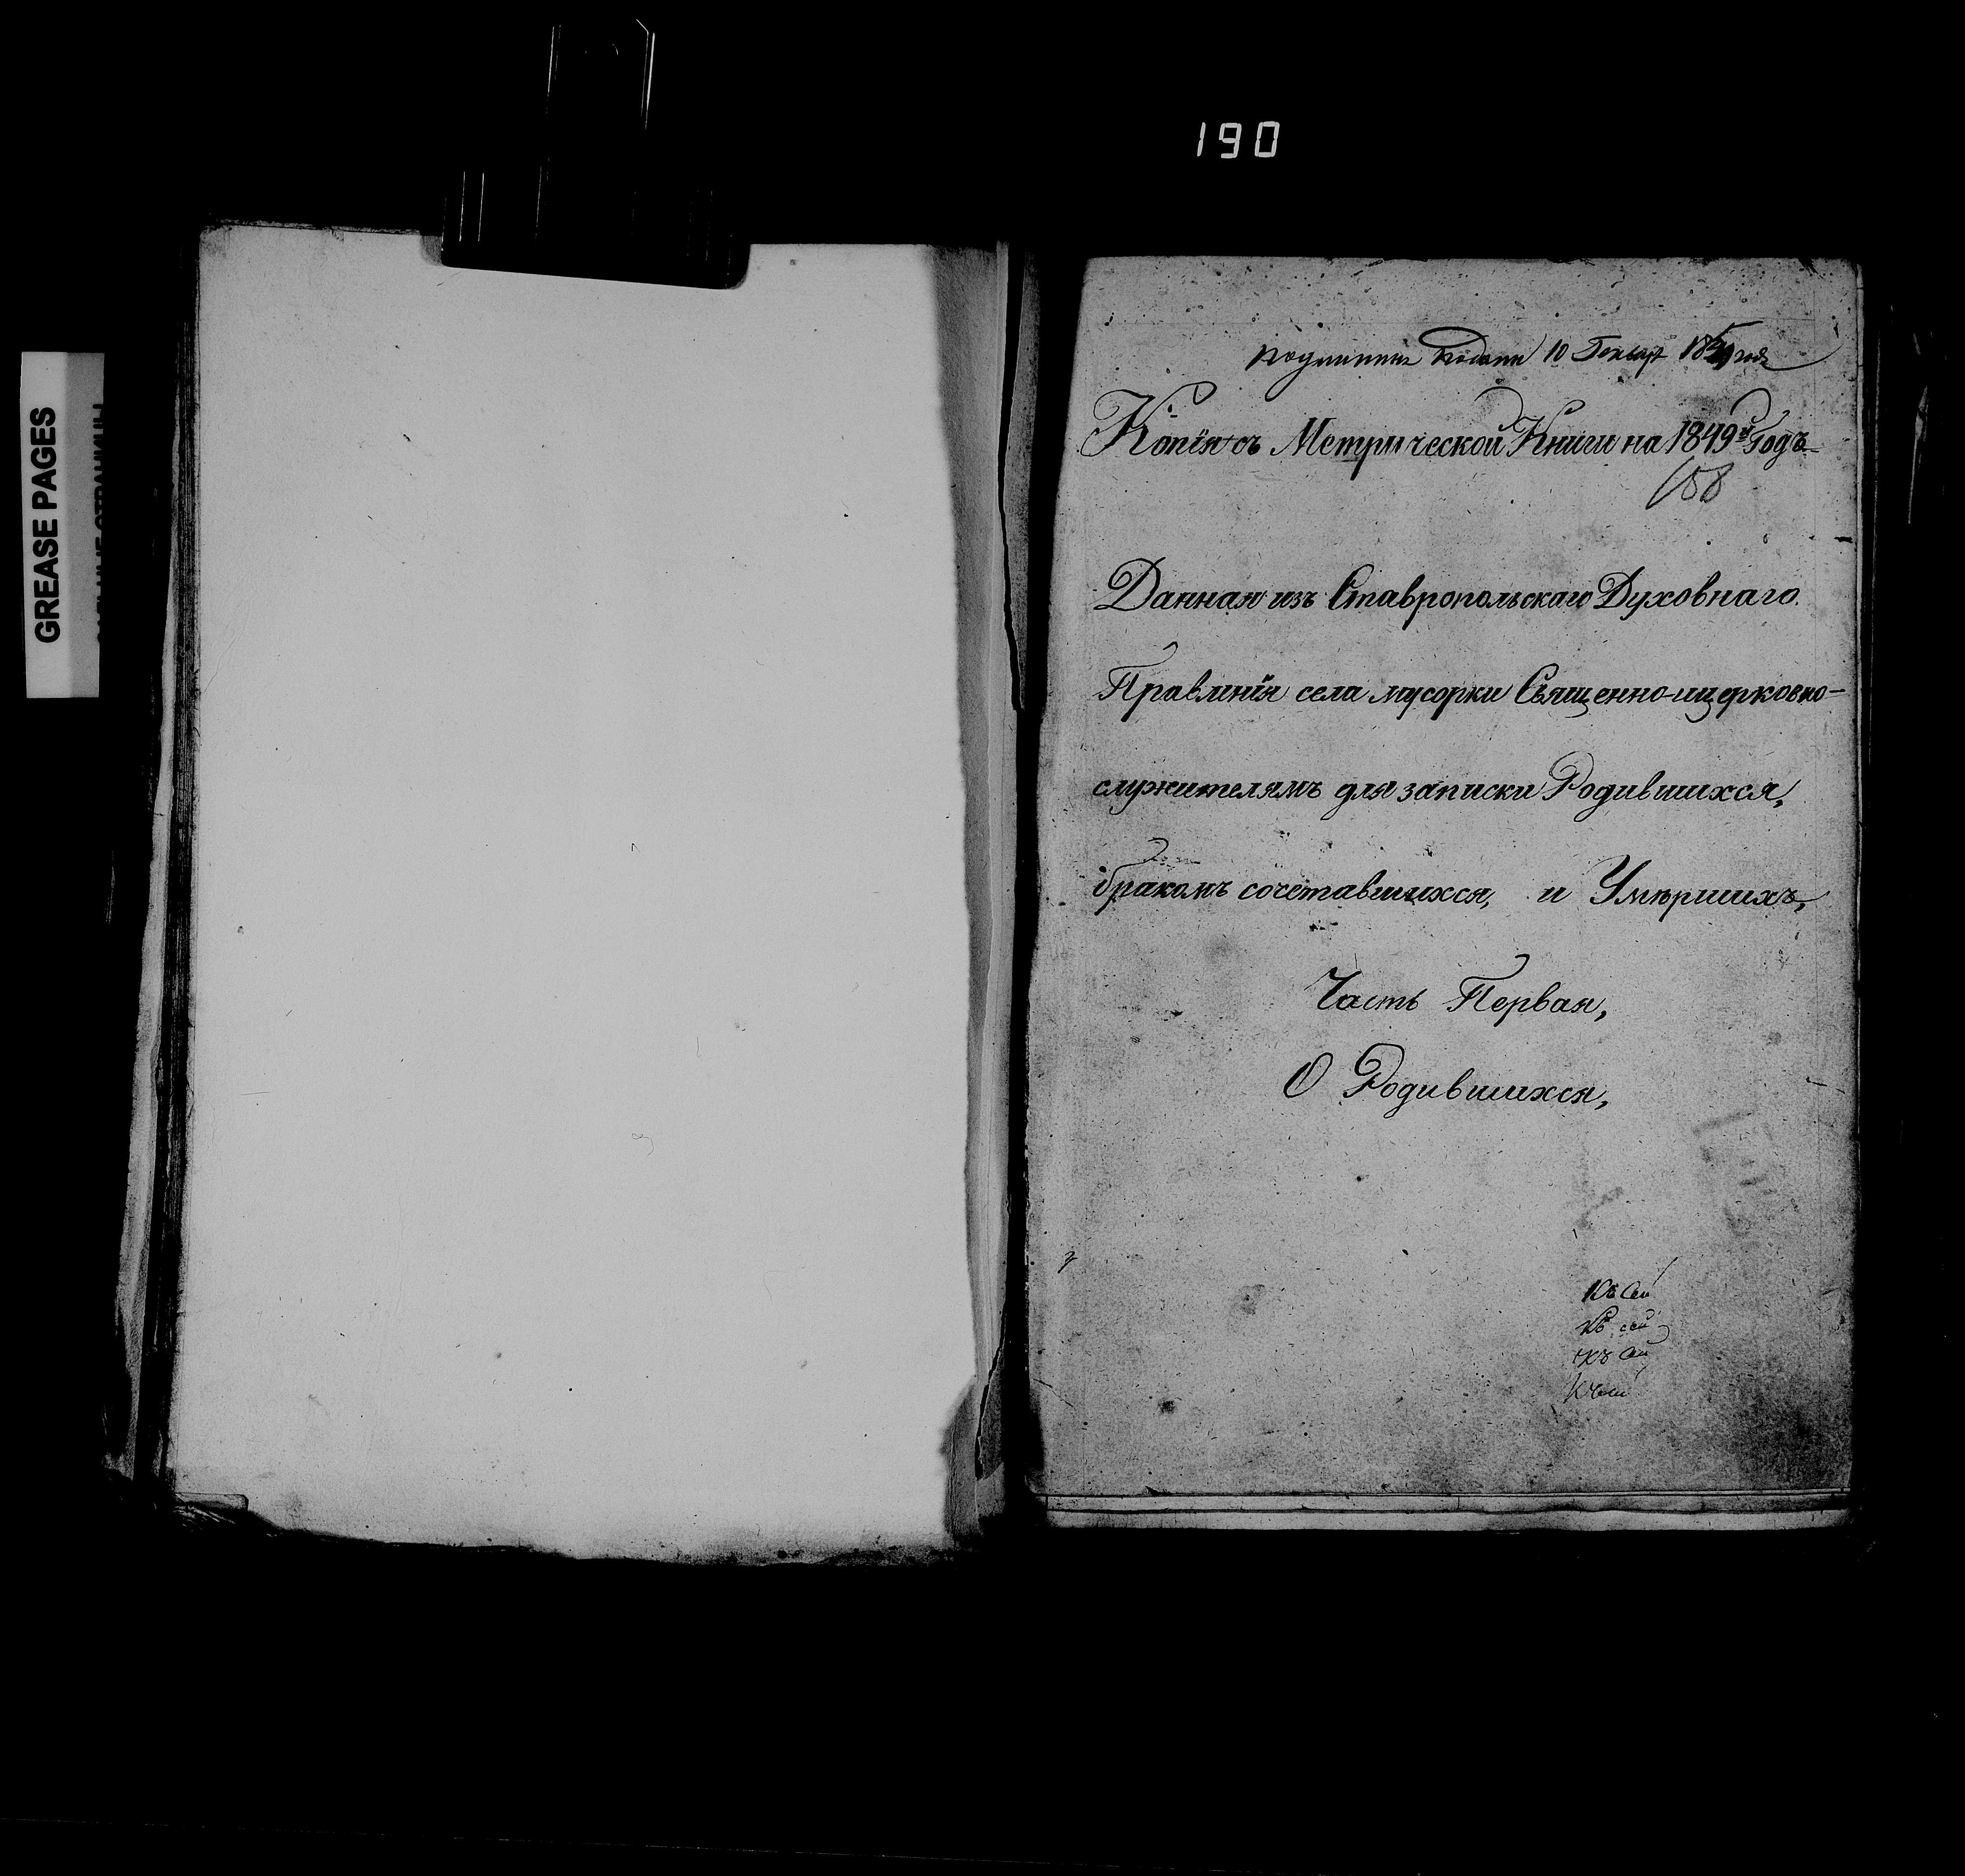 190
GREASE PAGES
10 Генваря
Копія съ Метрической Книги на 1849й Годъ
158
Данная изъ Ставропольскаго Духовнаго
Правленія села мусорки Священно-ицерковно-
служителямъ для записки Родившихся,
бракомъ сочетавшихся, и Умѣршихъ,
Часть Первая,
О Родившихся,